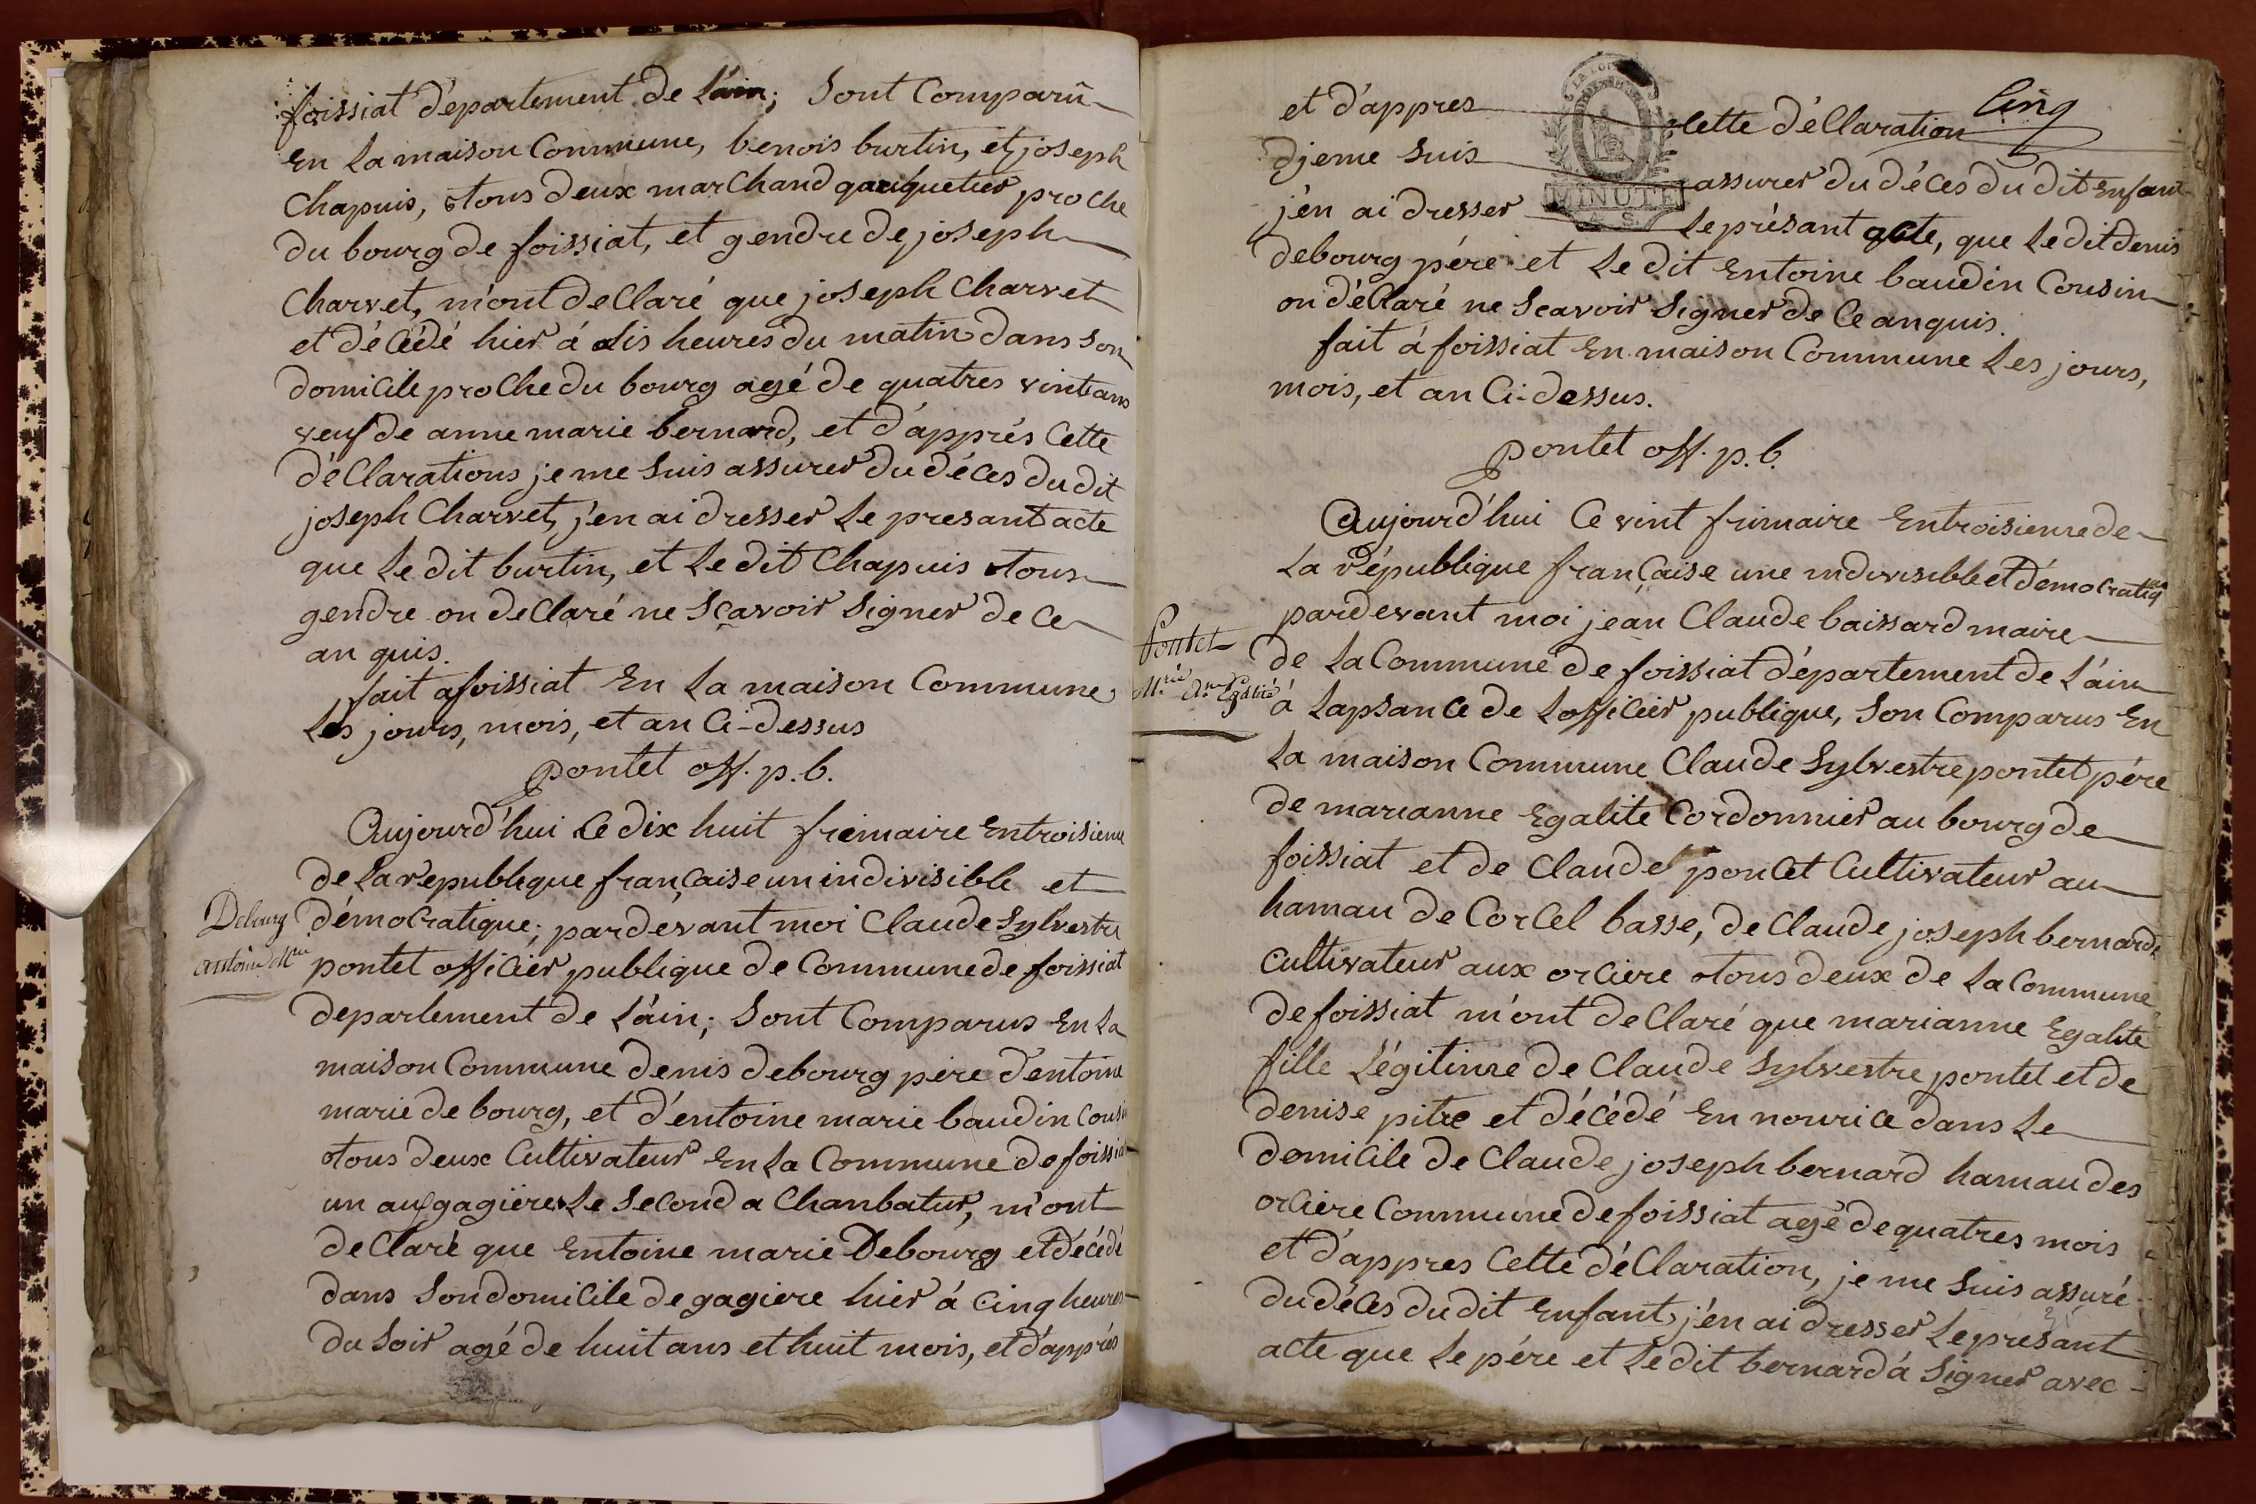 foissiat d'epartement de L'ain; Sont Comparû
En La maison Commune, benois burtin, et joseph
Chapuis, tous deux marChand proche
du bourg de foissiat, et gendre de joseph
Charvet, m'ont deClaré que joseph Charvet
et déCédé hier á dis heures du matin dans Son
domiCile proChe du bourg agé de quatres vint ans
veuf de anne marie bernard, et d'apprés Cette
d'éClarations je me Suis assurer du déCes du dit
joseph Charvet, j'en ai dresser Le presant acte
que Le dit burtin, et Le dit Chapuis tous
gendre on deClaré ne Sçavoir Signer de Ce
an quis.
fait a foissiat En La maison Commune
Les jours, mois, et an Ci-dessus
pontet off. p. b.
Aujourd'hui Ce dix huit frimaire Entroisieme
de La republique française un indivisible et
Debourg
démoCratique; pardevant moi Claude Sylvestre
antoine Mrie
pontet offiCier publique de Commune de foissiat
departement de L'ain; Sont Comparus En La
maison Commune denis debourg pere d'entoine
marie de bourg, et d'entoine marie baudin Cousin
tous deux Cultivateur En La Commune de foissiat
un au gagiere Le Second a Chanbatur, m'ont
deClaré que Entoine marie Debourg et déCédé
dans Son domiCile de gagiere hier á Cinq heures
du Soir agé de huit ans et huit mois, et d'apprés
Cinq
et d'appres Cette d'éClaration
djeme Suis assurer du déCes du dit Enfant
LA LOI
MINUTE
A. S.
j'én ai dresser Le présant acte, que Le dit denis
debourg pére et Le dit Entoine baudin Cousin
on d'éClaré ne Scavoir Signer de Ce anquis.
fait á foissiat En maison Commune Les jours,
mois, et an Ci-dessus.
pontet off. p. b.
Aujourd'hui Ce vint frimaire Entroisieme de
La république française une indivisible et démoCratiq
pardevant moi jean Claude baissard maire
Pontet
de La Commune de foissiat département de L'ain
M.rie An Egalité
á Lapsance de LoffiCier publique, Son Comparus En
La maison Commune Claude Sylvestre pontet pére
de marianne Egalite Cordonnier au bourg de
foissiat et de Claude ponCet Cultivateur au
hamau de CorCel basse, de Claude joseph bernard
Cultivateur aux orCiere tous deux de La Commune
de foissiat m'ont deClaré que marianne Egalite
fille Légitime de Claude Sylvestre pontet et de
denise pitre et déCédé En nouriCe dans Le
domiCile de Claude joseph bernard hamau des
orCiere Commune de foissiat agé de quatres mois
et d'appres Cette déClaration, je me Suis assuré
du déCes du dit Enfant, j'én ai dresser Le présant
acte que Le pére et Le dit bernard á Signer avec